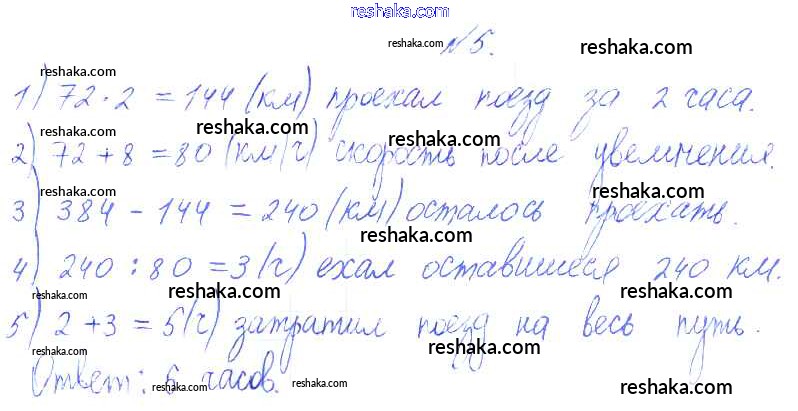 reshaka.com
reshaka.com №5. reshaka.com
reshaka.com
1) 72·2 = 144 (км) проехал поезд за 2 часа.
reshaka.com reshaka.com reshaka.com
2) 72+8 = 80 (км/ч) скорость после увеличения.
reshaka.com reshaka.com reshaka.com
3) 384-144 = 240 (км) осталось проехать.
reshaka.com
4) 240:80 = 3 (ч) ехал оставшиеся 240 км.
reshaka.com reshaka.com reshaka.com
5) 2+3 = 5 (ч) затратил поезд на весь путь.
reshaka.com reshaka.com
Ответ: 5 часов.
reshaka.com reshaka.com